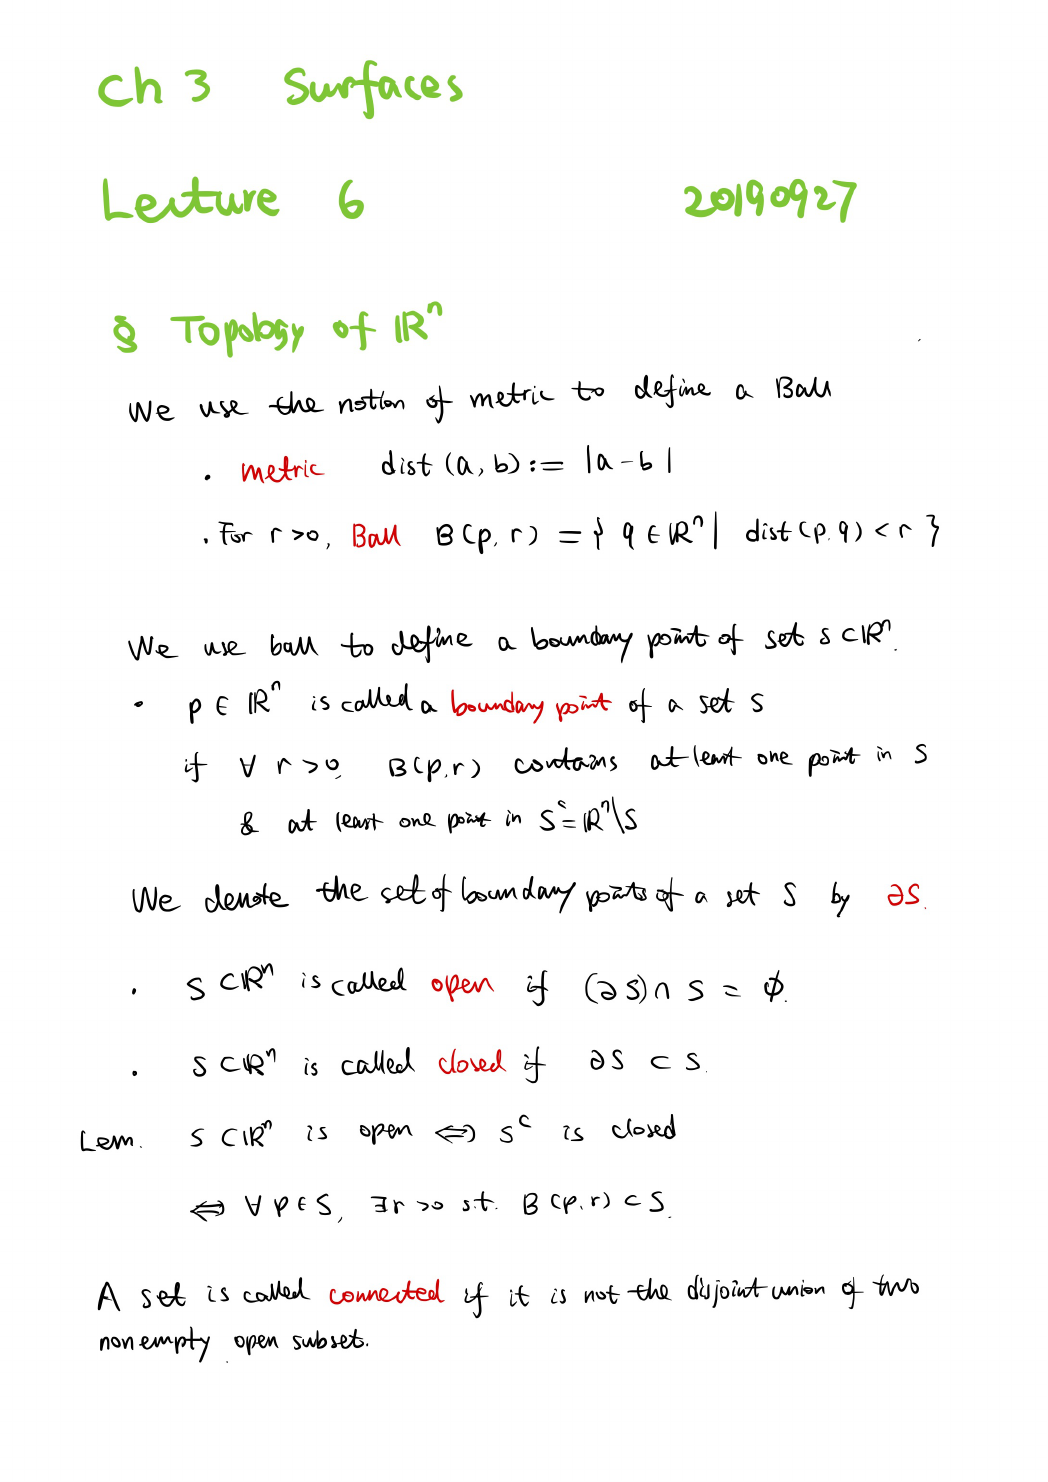 Ch 3 Surfaces
Lecture 6 20190927
§ Topology of ℝⁿ
We use the notion of metric to define a Ball
· metric dist (a, b) := |a - b|
· For r > 0, Ball B(p, r) = { q ∈ ℝⁿ | dist (p, q) < r }
We use ball to define a boundary point of set S ⊂ ℝⁿ.
· p ∈ ℝⁿ is called a boundary point of a set S
if ∀ r > 0, B(p, r) contains at least one point in S
& at least one point in Sᶜ = ℝⁿ\S
We denote the set of boundary points of a set S by ∂S.
· S ⊂ ℝⁿ is called open if (∂S) ∩ S = ∅.
· S ⊂ ℝⁿ is called closed if ∂S ⊂ S.
Lem. S ⊂ ℝⁿ is open ⇔ Sᶜ is closed
⇔ ∀ p ∈ S, ∃ r > 0 s.t. B(p, r) ⊂ S.
A set is called connected if it is not the disjoint union of two
nonempty open subset.